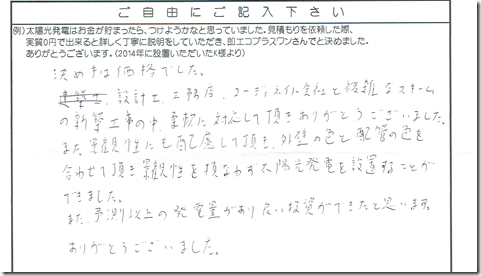 ご自由にご記入下さい
例) 太陽光発電はお金が貯まったら、つけようかなと思っていました。見積もりを依頼した際、
実質0円で出来ると詳しく丁寧に説明をしていただき、即エコプラスワンさんでと決めました。
ありがとうございます。(2014年に設置いただいたK様より)
決め手は価格でした。
設計士、工務店、コーディネイト会社と複雑なスキーム
の新築工事の中、柔軟に対応して頂きありがとうございました。
また景観性にも配慮して頂き、外壁の色と配管の色を
合わせて頂き景観性を損なわず太陽光発電を設置することが
できました。
また、予測以上の発電量があり、良い投資ができたと思います。
ありがとうございました。